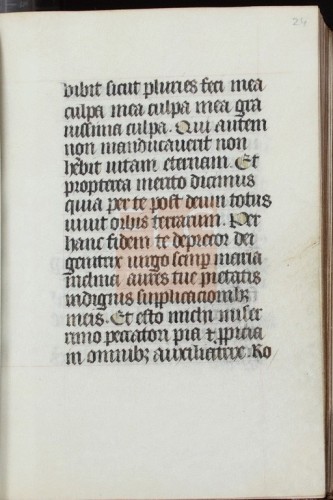 24
bibit sicut pluries feci mea
culpa mea culpa mea gra
uissima culpa. Qui autem
non manducauerit non
hēbit uitam eternam. Et
propterea merito dicimus
quia per te post deum totus
uiuit orbis terrarum. Per
hanc fidem te deprecor dei
genitrix uirgo semꝑ maria
inclina aures tue pietatis
indignis supplicacionibꝫ
meis. Et esto michi miser
rimo peccatori pia ⁊ ꝓpicia
in omnibꝫ auxiliatrix. Ro